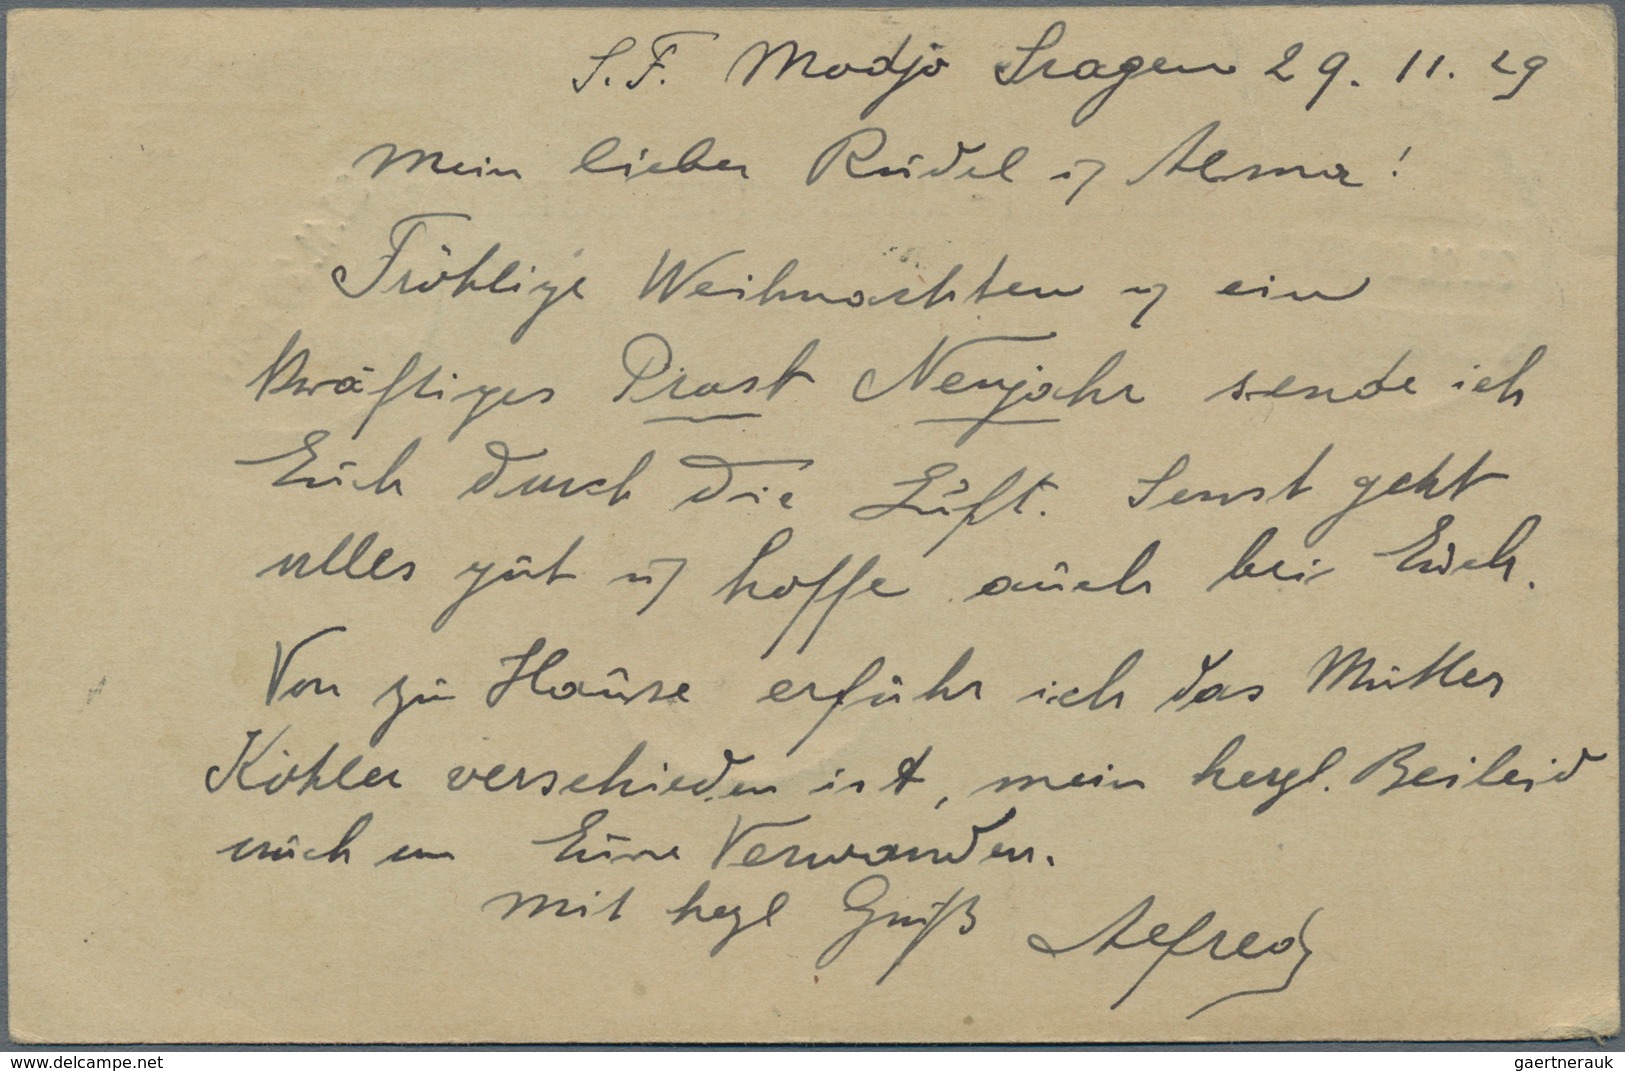 S.F. Modjo Sragen 29.11.29
Mein lieber Rudel u Alma!
Fröhlige Weihnachten u ein
kräftiges Prost Neujahr sende ich
Euch durch die Luft. Sonst geht
alles gut u hoffe auch bei Euch.
Von zu Hause erfuhr ich das Mutter
Köhler verschieden ist, mein herzl. Beileid
auch an Eure Verwanden.
Mit hezl Gruß Alfred
www.delcampe.net
gaertnerauk